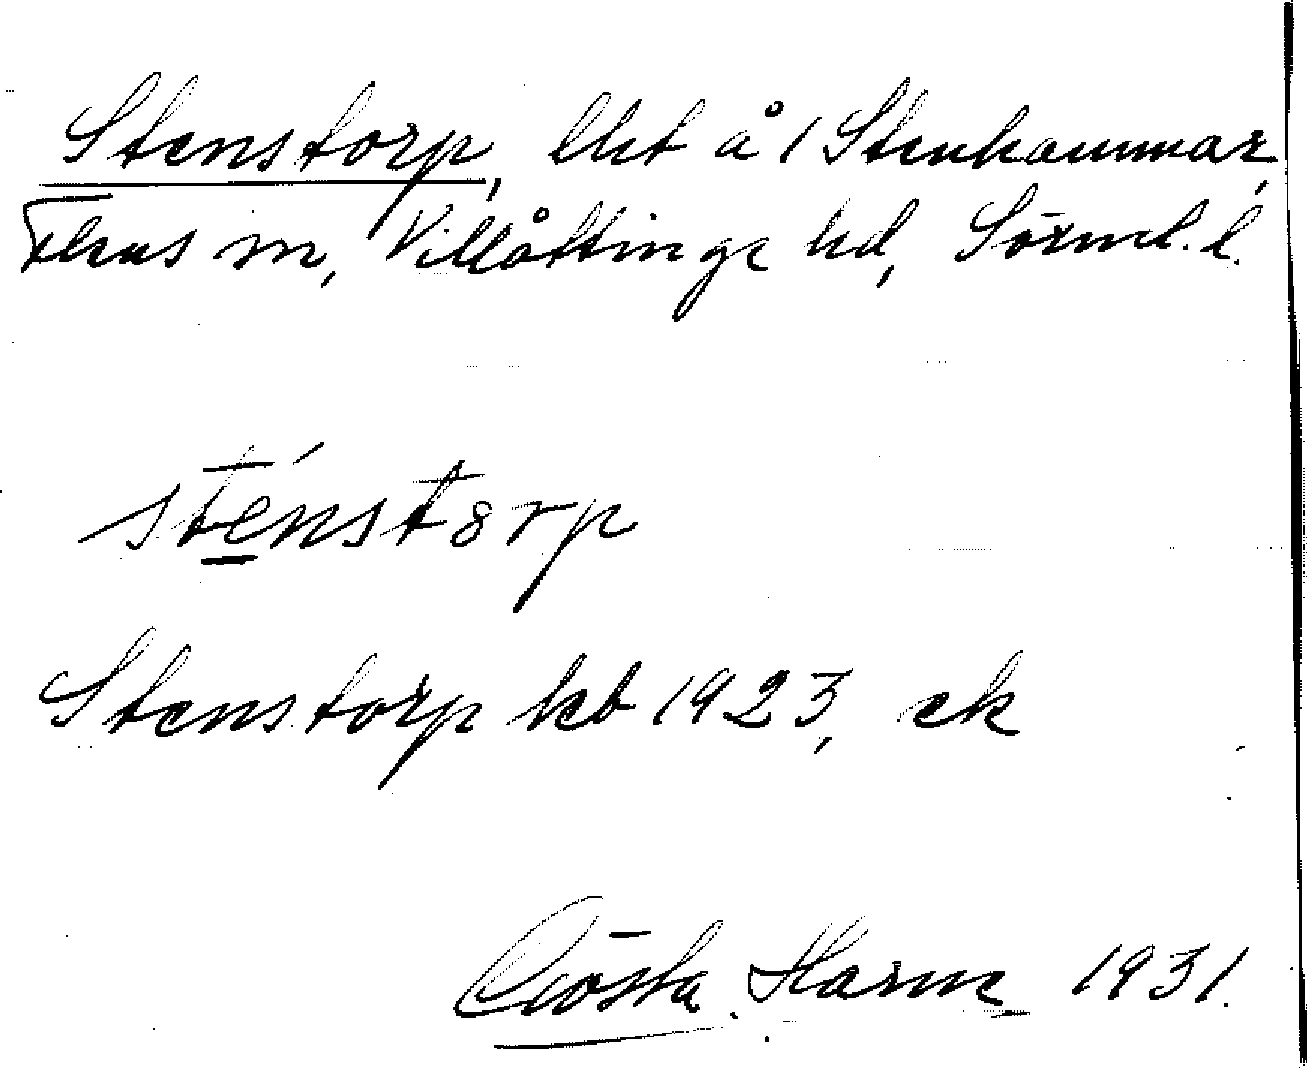 Stenstorp, lht å 1 Stenhammar,
Flens sn, Villåttinge hd, Sörml. l.
sténstorp
Stenstorp kb 1923, ek
Gösta Harne 1931.